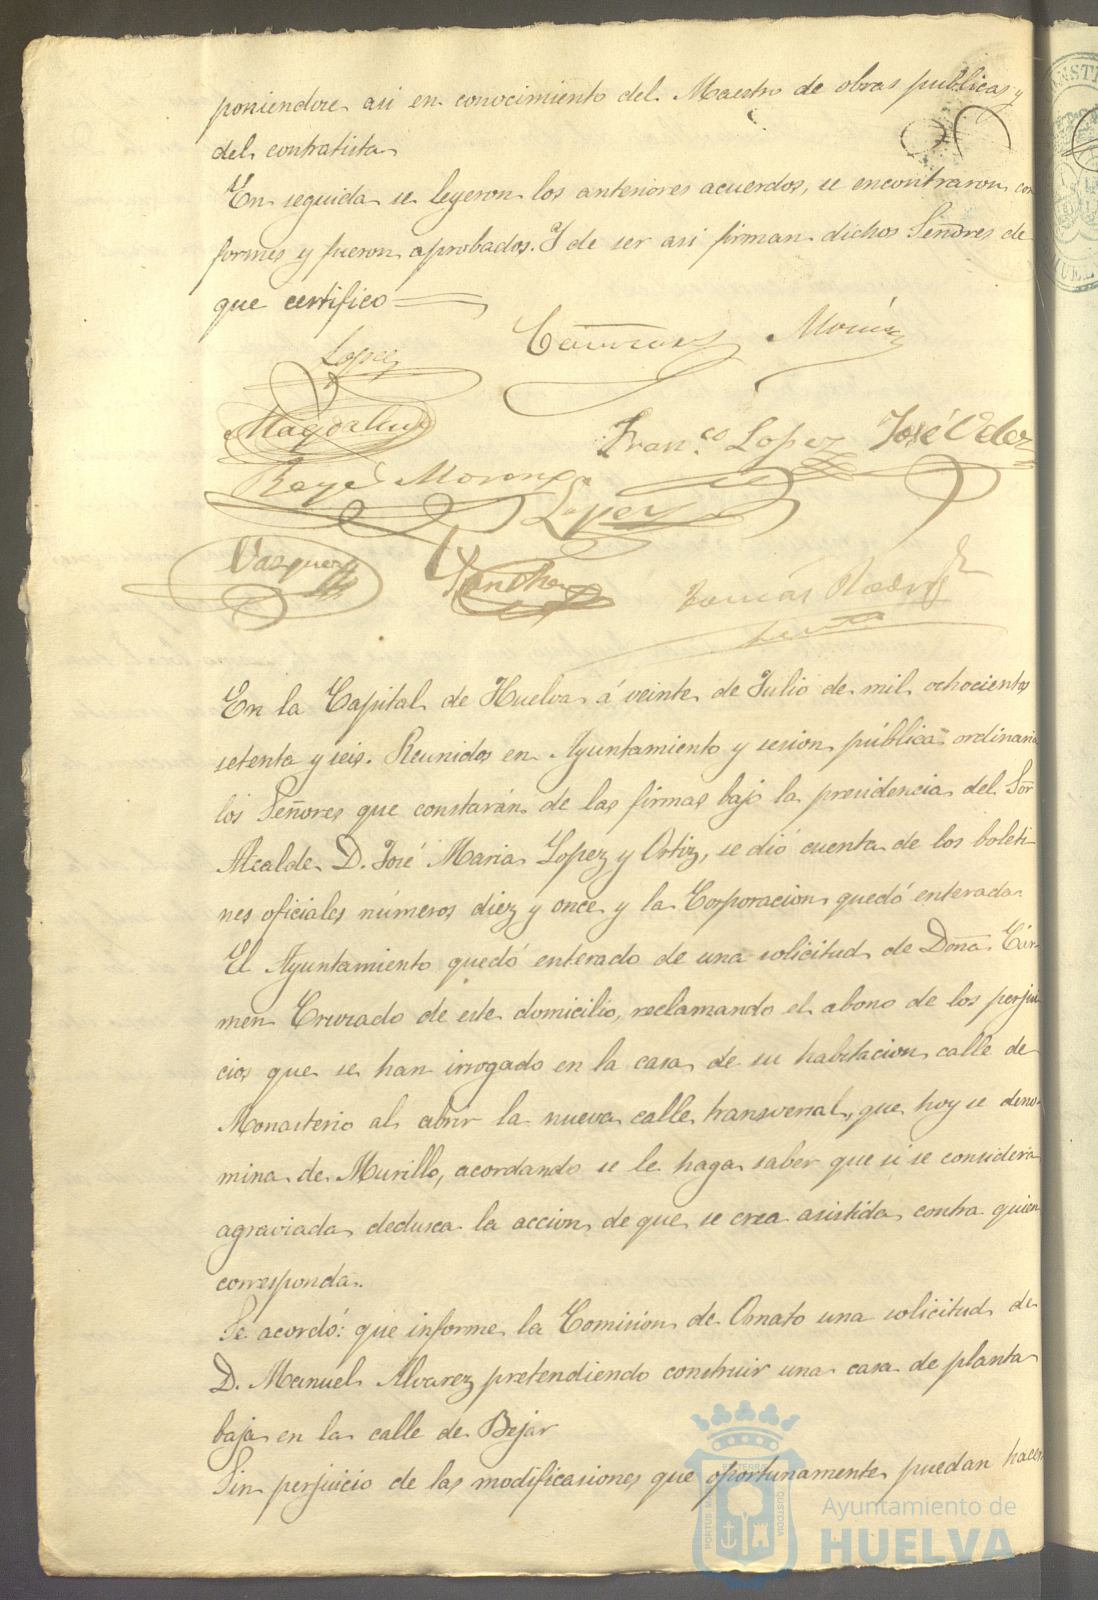 poniendose asi en conocimiento del Maestro de obras publicas y
del contratista
En seguida se leyeron los anteriores acuerdos, se encontraron con
formes y fueron aprobados. Y de ser asi firman dichos Señores de
que certifico
Lopez
Morián
Magdalena
Fran.co Lopez José Velez
Reyes Moreno
Lopez
Vazquez
Sanchez
Tomás Rodrig
En la Capital de Huelva á veinte de Julio de mil ochocientos
setenta y seis. Reunidos en Ayuntamiento y sesion pública ordinaria
los Señores que constarán de las firmas bajo la presidencia del Sor
Alcalde D. José Maria Lopez y Ortiz, se dió cuenta de los boleti
nes oficiales números diez y once y la Corporacion quedó enterada
El Ayuntamiento quedó enterado de una solicitud de Doña Cár
men Cruzado de este domicilio, reclamando el abono de los perjui
cios que se han irrogado en la casa de su habitacion calle de
Monasterio al abrir la nueva calle transversal, que hoy se deno
mina de Murillo, acordando se le haga saber que si se considera
agraviada deduzca la accion de que se crea asistida contra quien
corresponda.
Se acordó: que informe la Comision de Ornato una solicitud de
D. Manuel Alvarez pretendiendo construir una casa de planta
baja en la calle de Bejar
Sin perjuicio de las modificasiones que oportunamente puedan hacer
Ayuntamiento de
HUELVA